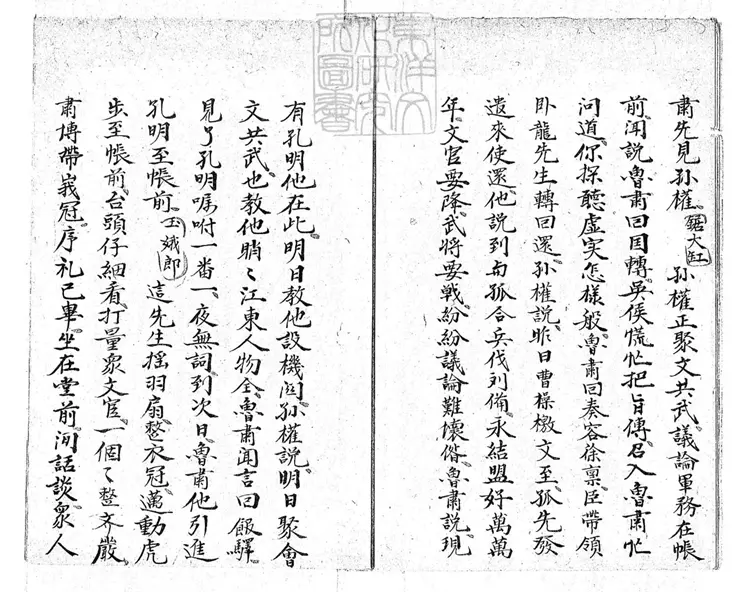 東洋文
化研究
所圖書
肅先見孫權。鋸大缸 孫權正聚文共武。議論軍務在帳
前。聞說魯肅回囯轉。吳侯慌忙把旨傳。召入魯肅忙
问道。你探聽虚实怎樣般。魯肅回奏容徐禀。臣帶領
卧龍先生轉回還。孫權說。昨日曹操檄文至。孤先發
遣來使還。他說到与孤合兵伐刘備。永结盟好萬萬
年。文官要降。武將要戰。紛紛議論難壞偺。魯肅說。現
有孔明他在此。明日教他設機関。孫權說。明日聚會
文共武。也教他睄〻江東人物全。魯肅聞言回舘驛。
見了孔明嘱咐一番。一夜無詞到次日。魯肅他引進
孔明至帳前。玉娥郎 這先生摇羽扇。整衣冠。邁動虎
步至帳前。台頭仔細看。打量衆文官。一個〻整齐嚴
肅博帶峩冠。序礼已畢。坐在堂前。闲話談。衆人